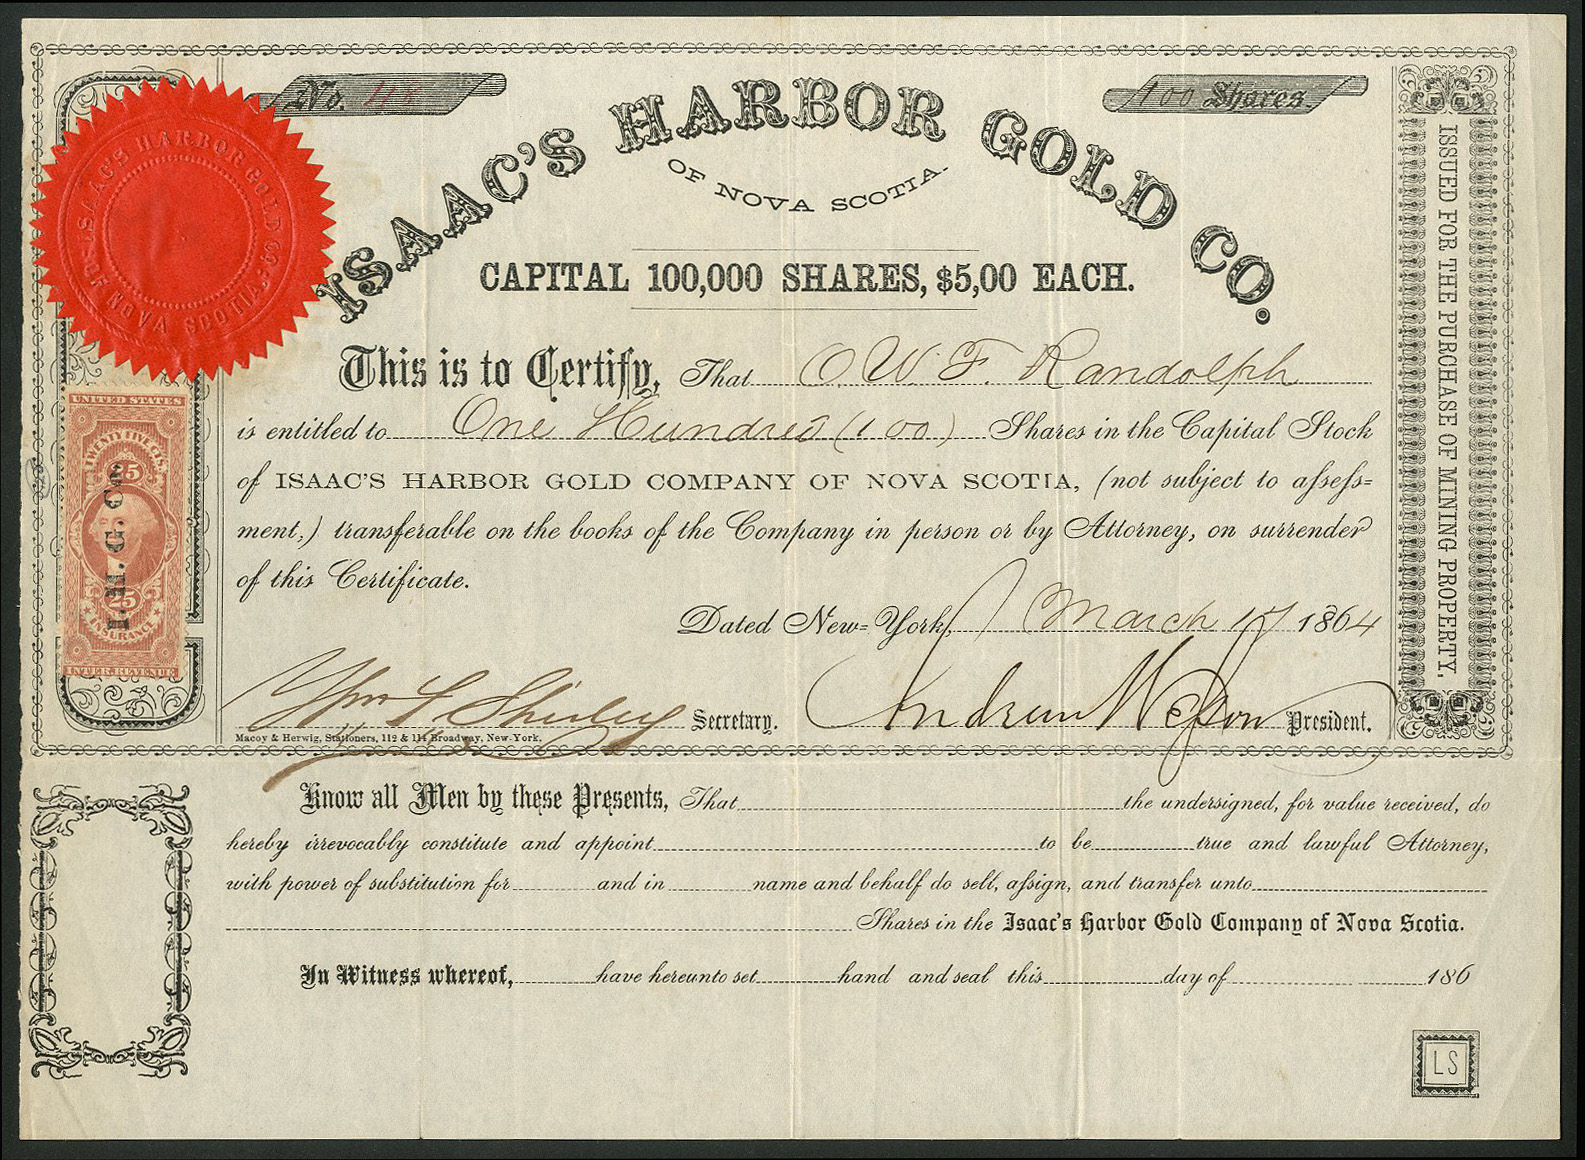 No. 48
100 Shares.
ISAAC'S HARBOR GOLD CO.
OF NOVA SCOTIA.
CAPITAL 100,000 SHARES, $5,00 EACH.
This is to Certify, That O. W. F. Randolph
is entitled to One Hundred (100) Shares in the Capital Stock
of ISAAC'S HARBOR GOLD COMPANY OF NOVA SCOTIA, (not subject to assess=
ment,) transferable on the books of the Company in person or by Attorney, on surrender
of this Certificate.
Dated New=York, March 17 1864
Wm Shirley Secretary. Andrew President.
Macoy & Herwig, Stationers, 112 & 114 Broadway, New-York.
ISSUED FOR THE PURCHASE OF MINING PROPERTY.
ISAAC'S HARBOR GOLD CO.
OF NOVA SCOTIA
UNITED STATES
TWENTY FIVE CTS.
25
I.H.G.Co.
25
INSURANCE
INTER. REVENUE
Know all Men by these Presents, That the undersigned, for value received, do
hereby irrevocably constitute and appoint to be true and lawful Attorney,
with power of substitution for and in name and behalf do sell, assign, and transfer unto
Shares in the Isaac's Harbor Gold Company of Nova Scotia.
In Witness whereof, have hereunto set hand and seal this day of 186
LS